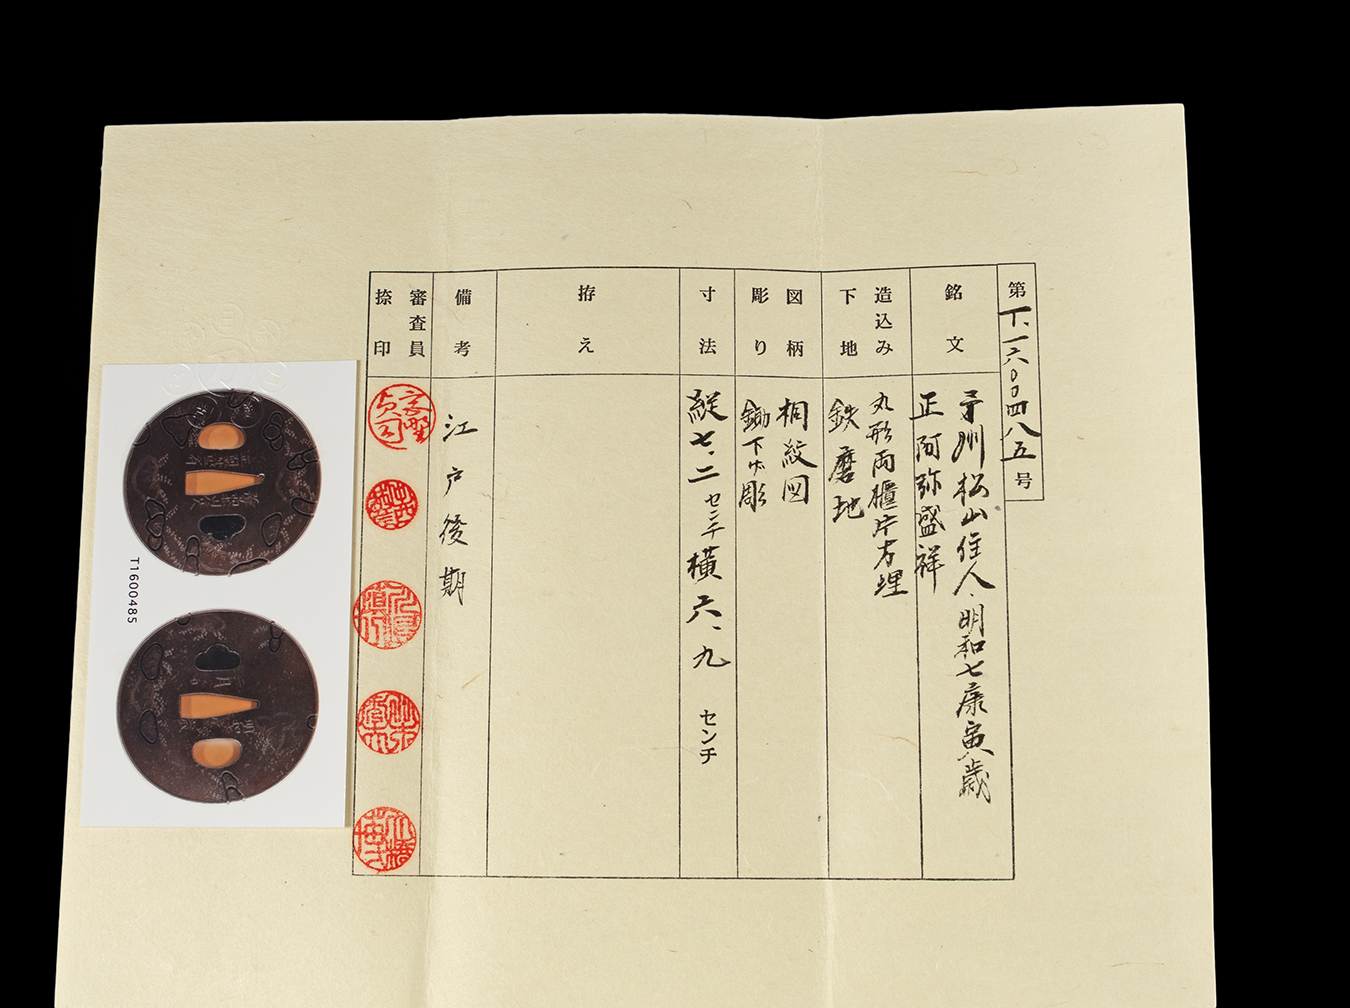 第T.一六〇〇四八五号
銘文
予州松山住人、明和七庚寅歳
正阿弥盛祥
造込み
下地
丸形両櫃片方埋
鉄磨地
図柄
彫り
桐紋図
鋤下ゲ彫
寸法
縦七.二センチ横六.九センチ
拵え
備考
江戸後期
審査員
捺印
T1600485